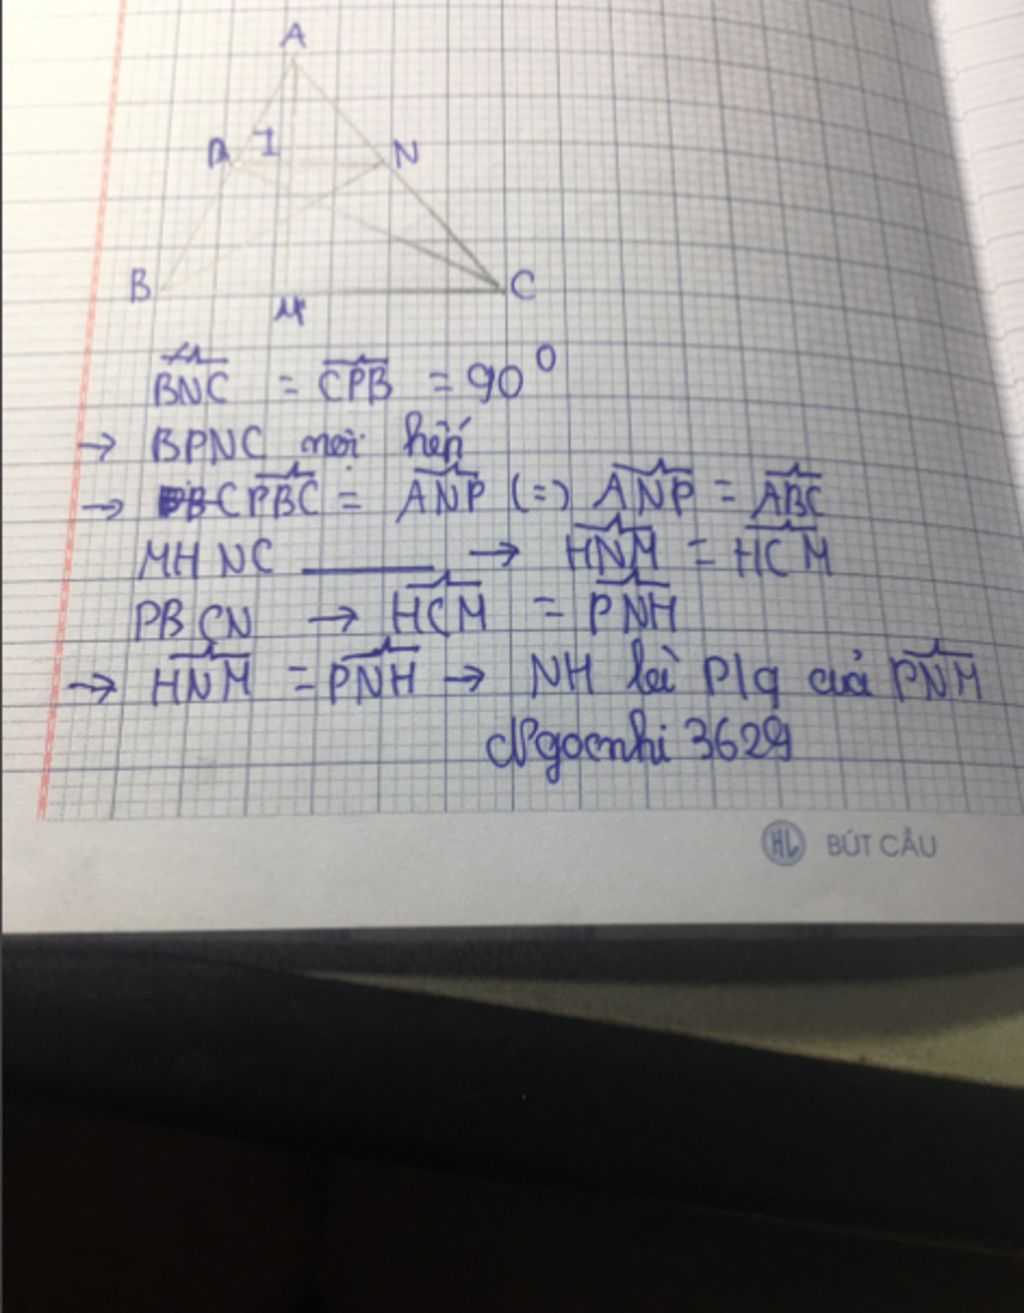 A
I
N
B
C
M
BNC = CPB = 90°
→ BPNC nội tiếp
→ CPBC = ANP (=) ANP = ABC
MHNC ______ → HNM = HCM
PBCN → HCM = PNH
→ HNM = PNH → NH là P/g của PNM
Ngocnhi 3629
HL BÚT CẦU